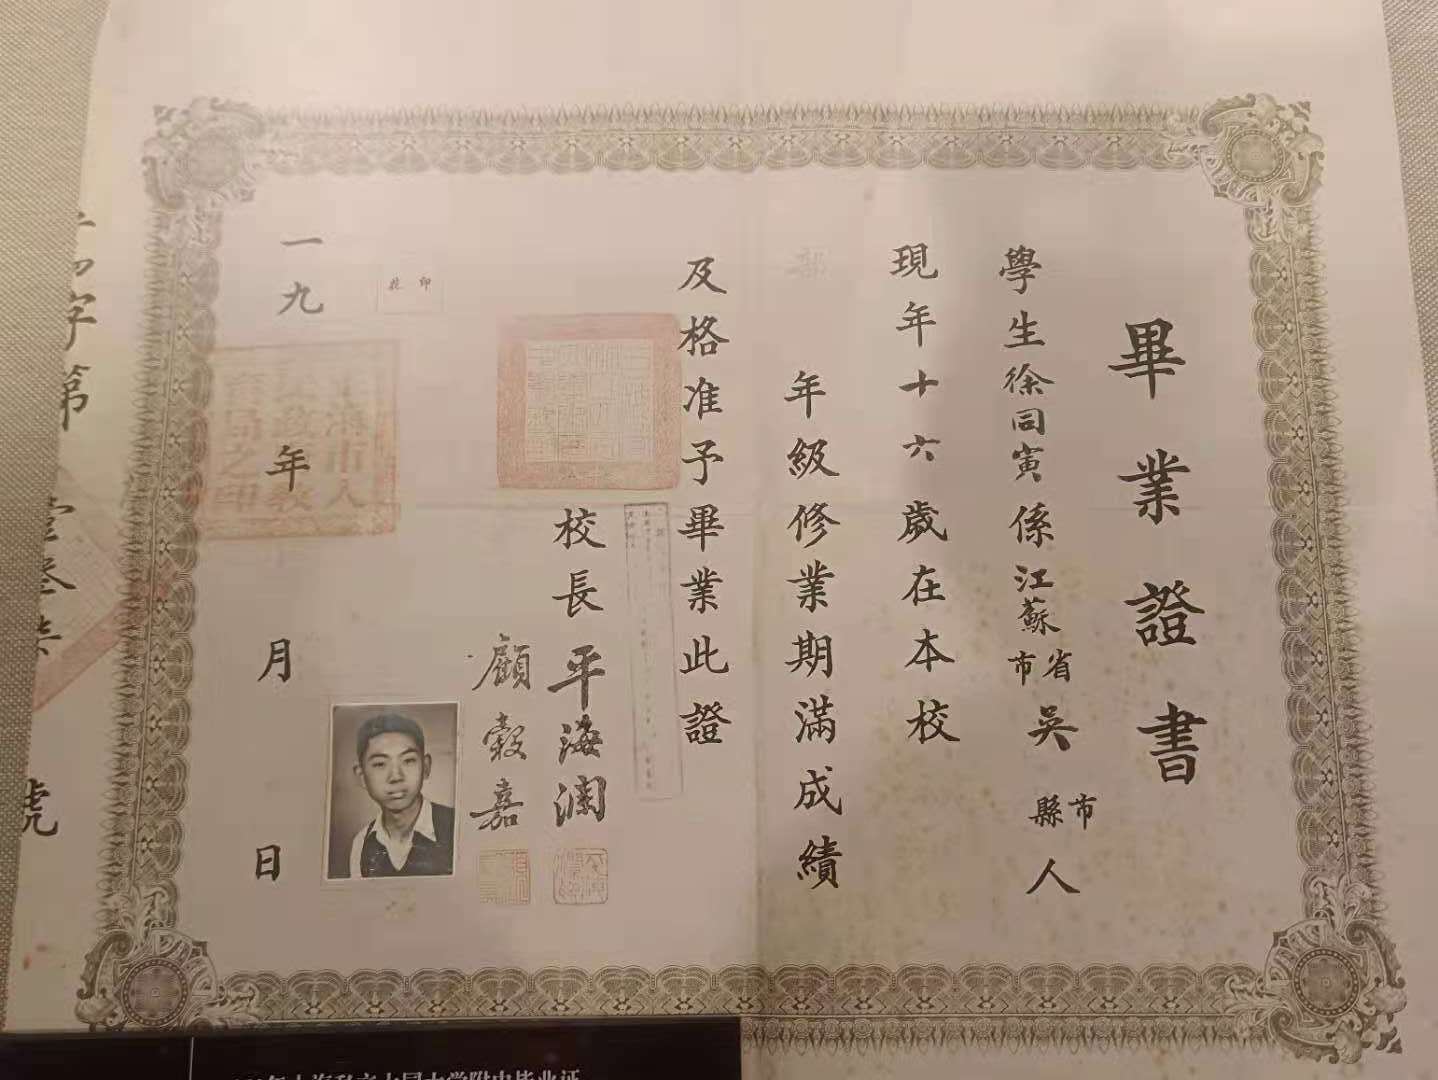 畢業證書
學生徐同寅係江蘇省市吳縣市人
現年十六歲在本校
部 年級修業期滿成績
及格准予畢業此證
校長平海瀾
顧穀嘉
印花
一九 年 月 日
上海市人民政府教育局之印
字第 號
年上海私立大同大学附中毕业证